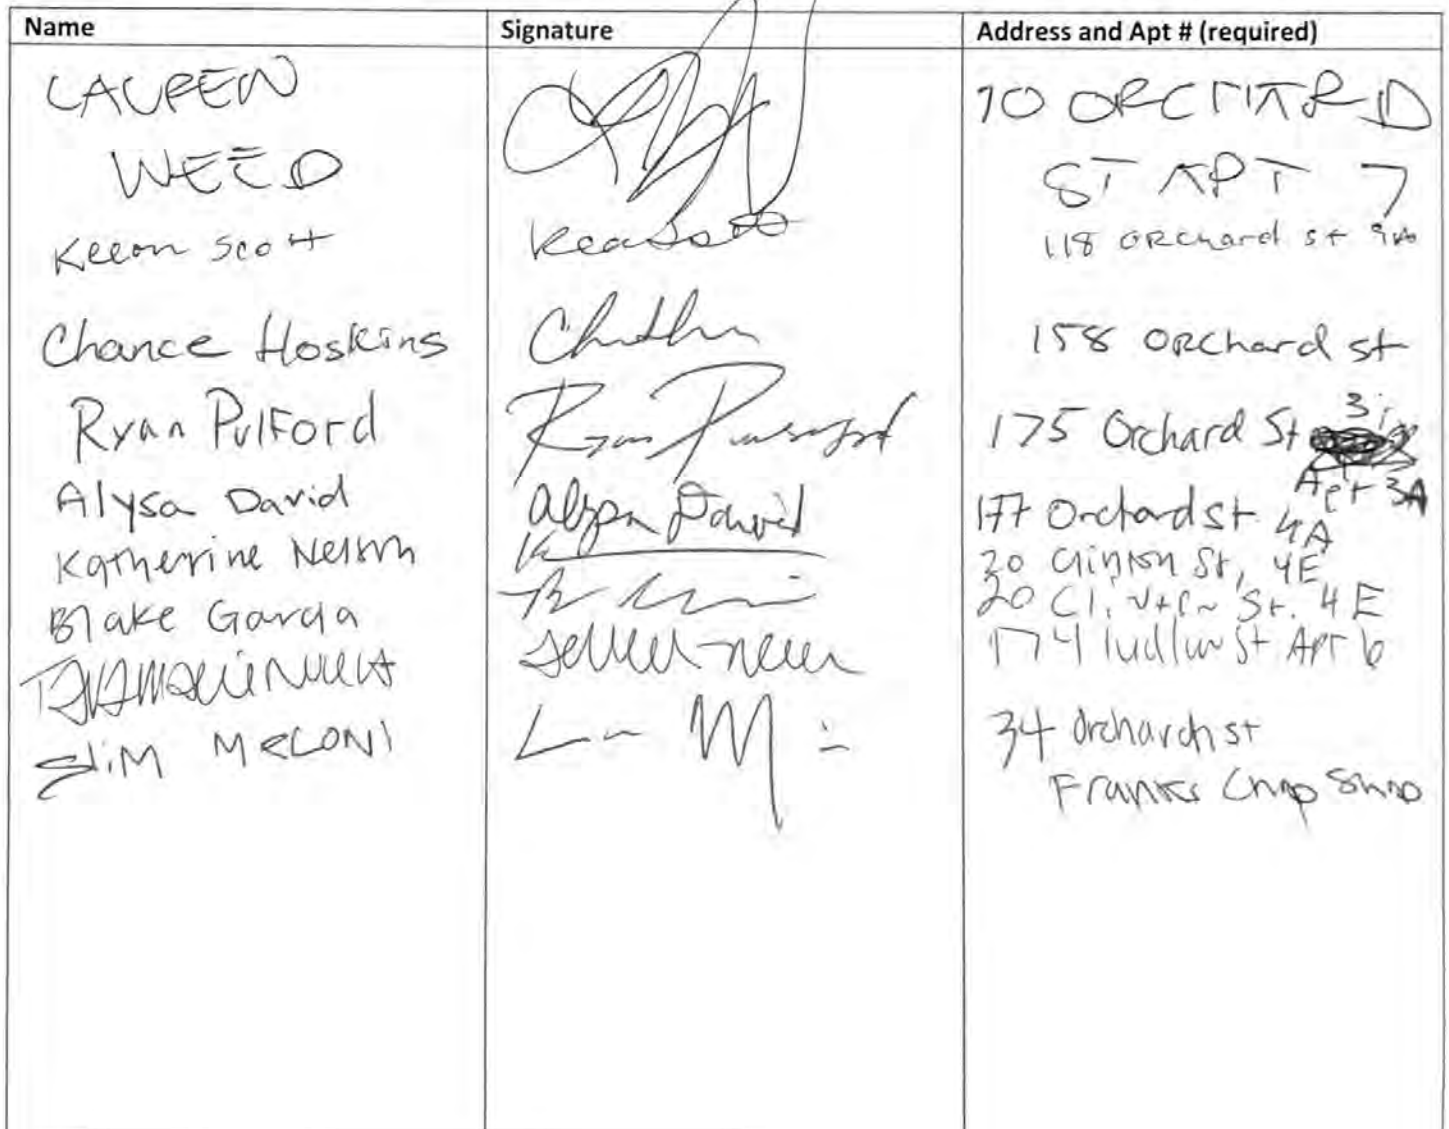 Name Signature Address and Apt # (required)
LAUREN 70 ORCHARD
WEED ST APT 7
Keeon Scott 118 ORchard st
Chance Hoskins 158 ORchard st
Ryan Pulford Ryan 175 Orchard St 3
Apt 3A
Alysa David Alysa David 177 Orchard st 4A
Katherine Nelson K 20 Clinton St, 4E
Blake Garcia 20 Clinton St. 4E
174 ludlow St Apt 6
Slim MELONI 34 Orchard st
Franks Chop Shop